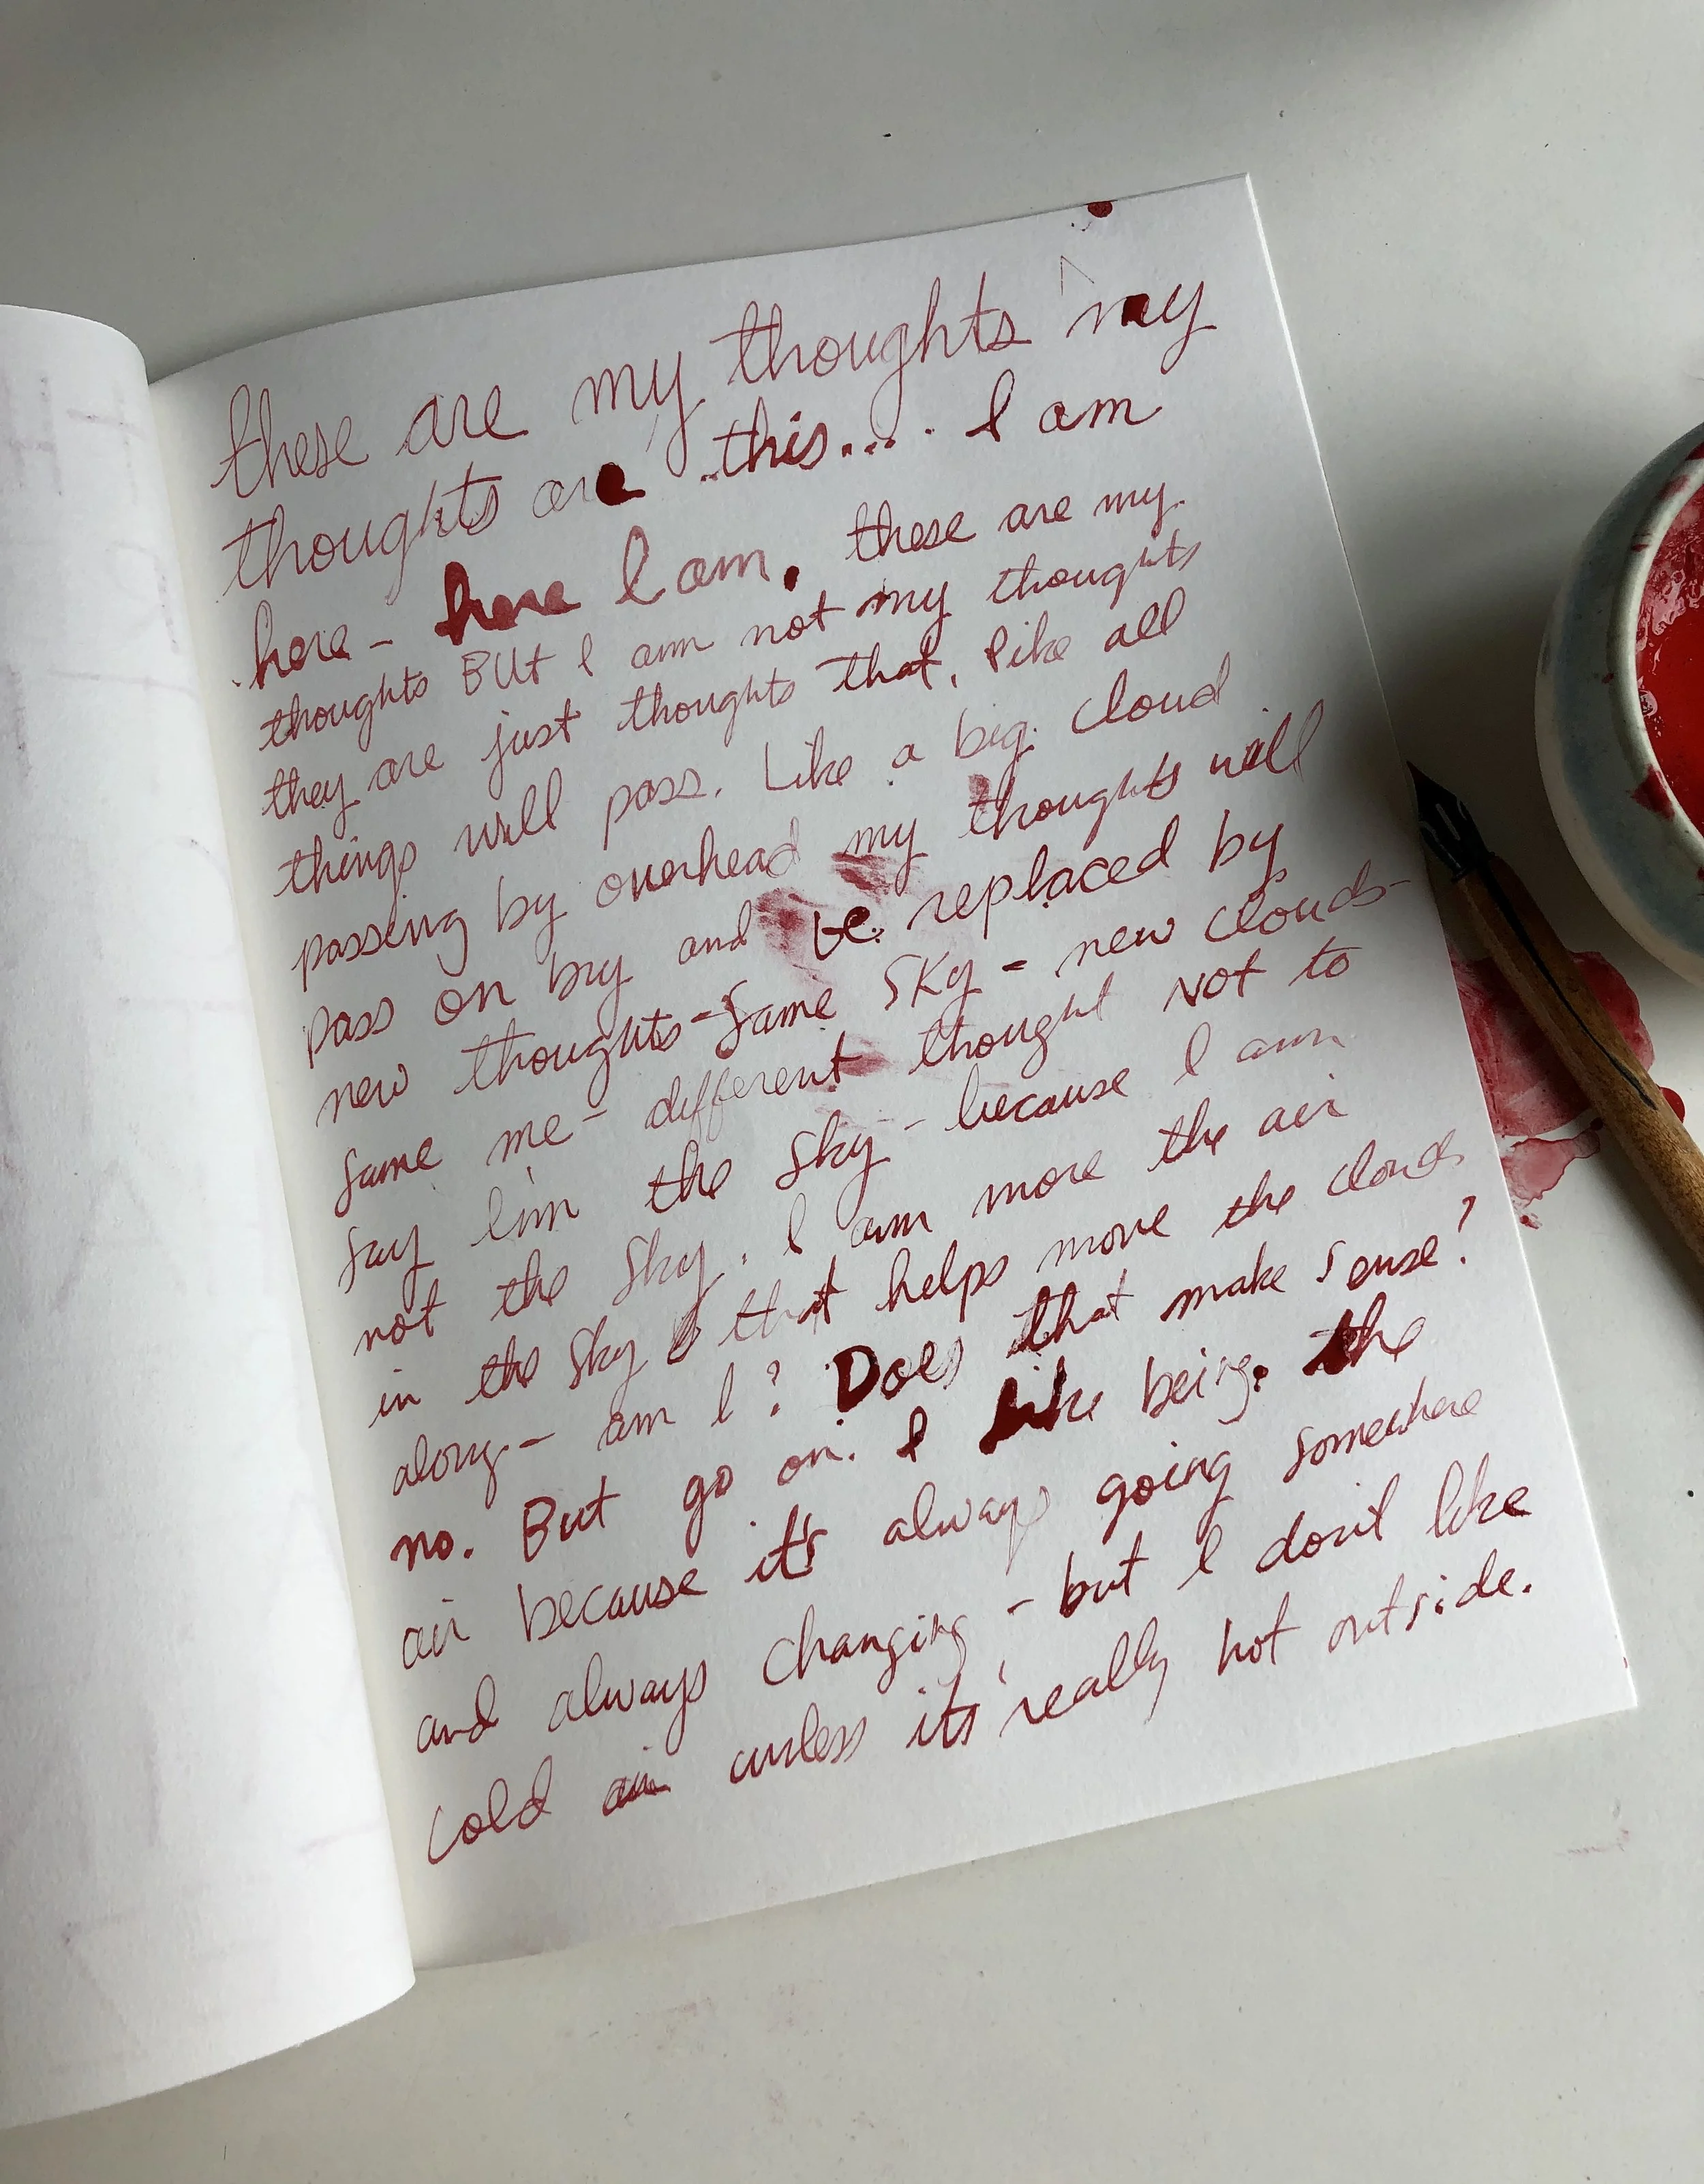 these are my thoughts my
thoughts are this.... I am
here - here I am. these are my
thoughts BUt I am not my thoughts
they are just thoughts that, like all
things will pass. Like a big cloud
passing by overhead my thoughts will
pass on by and be replaced by
new thoughts - same sky - new clouds -
same me - different thought not to
say I'm the sky - because I am
not the sky. I am more the air
in the sky that helps move the clouds
along - am I? Does that make sense?
no. But go on. I like being the
air because it's always going somewhere
and always changing - but I don't like
cold air unless its really hot outside.